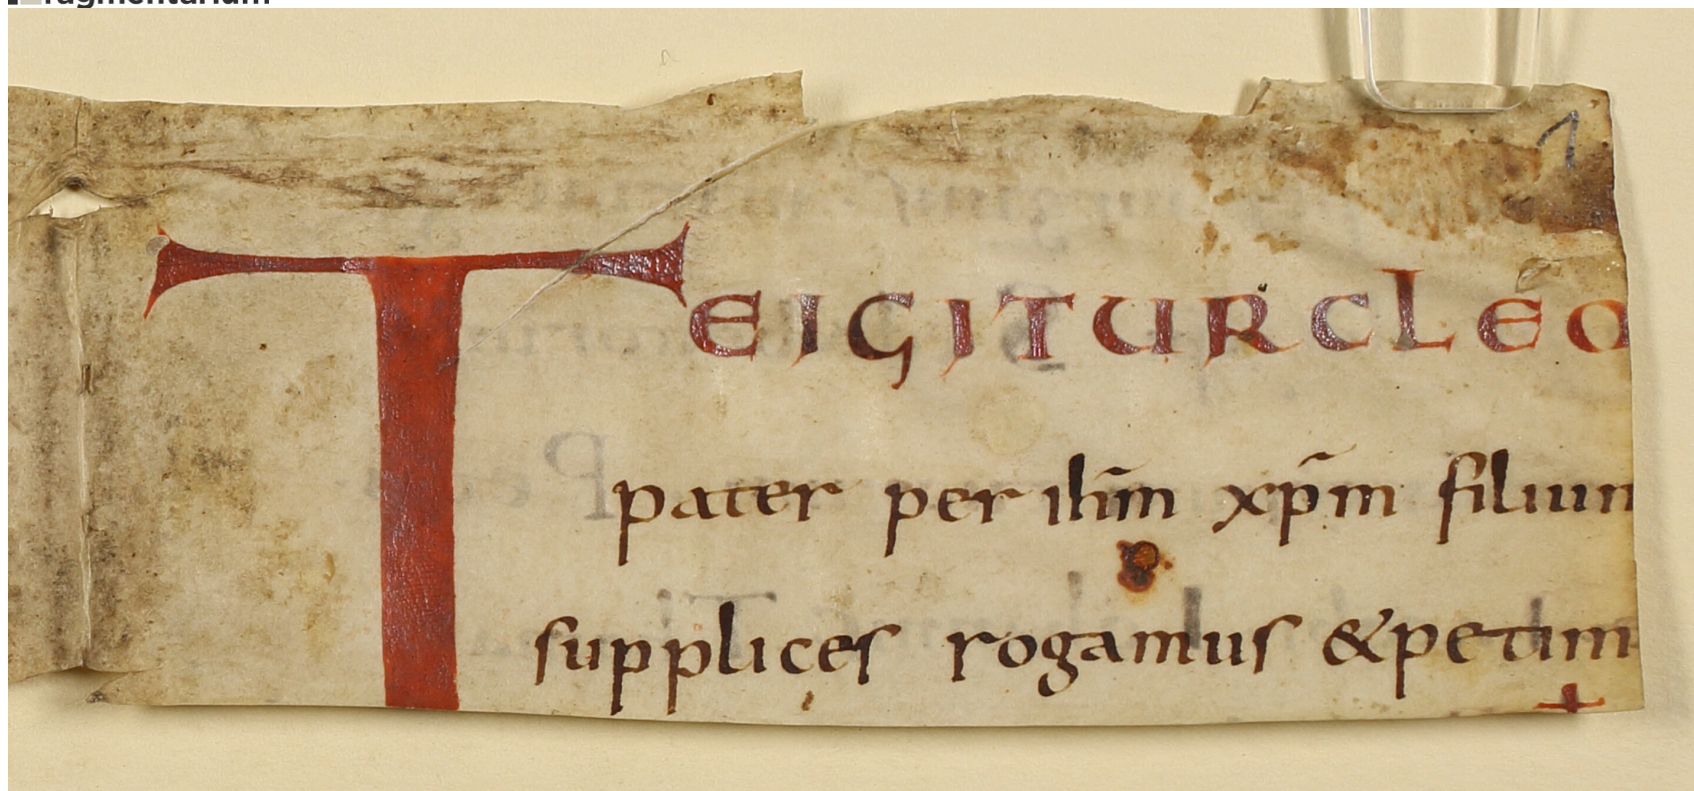 ragmentarium
1
TEIGITURCLEO
pater per ihm̅ xp̅m filium
supplices rogamus &petim